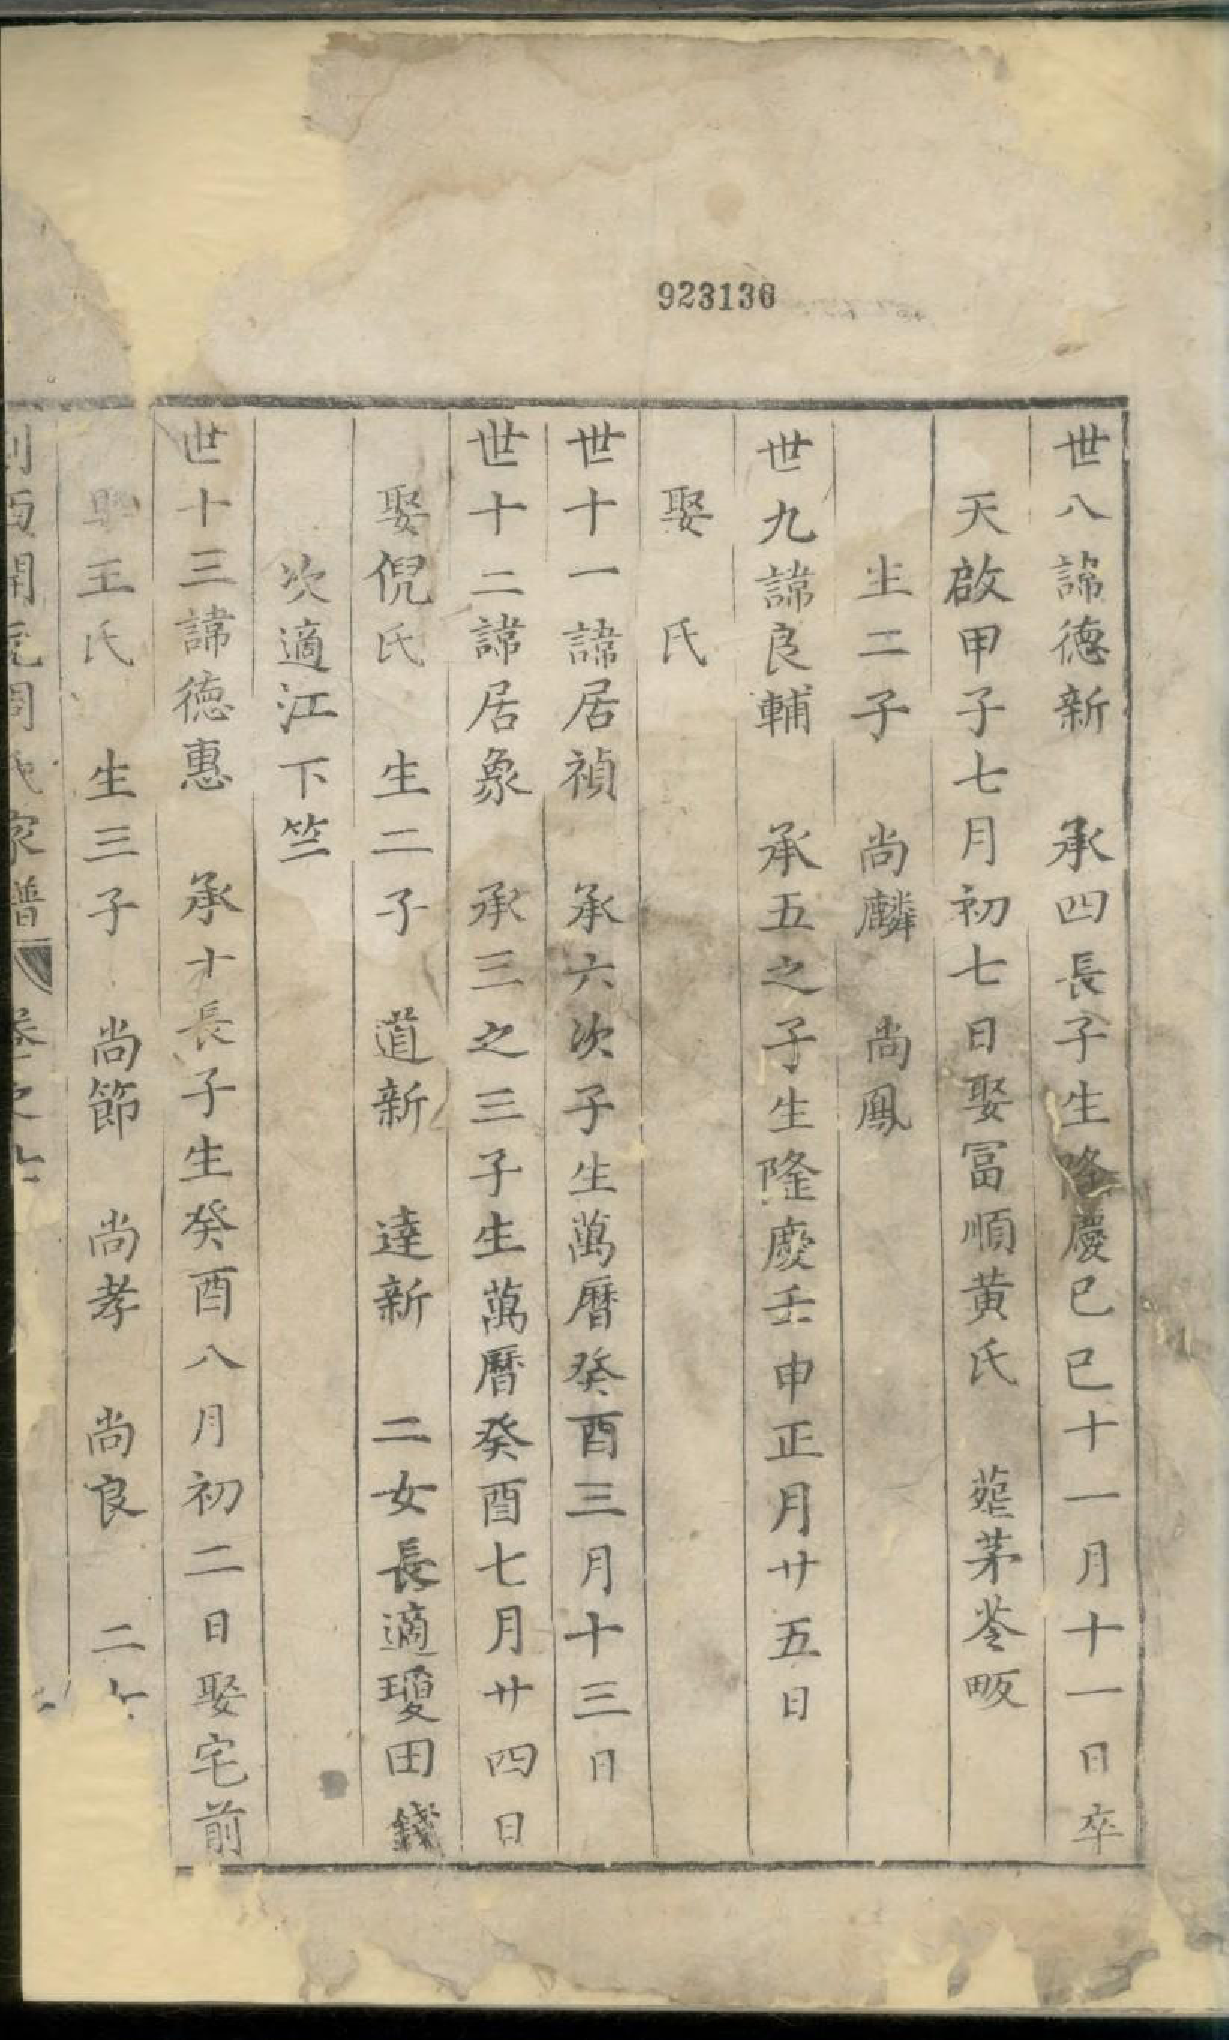 923136
世八諱德新　承四長子生隆慶己巳十一月十一日卒
天啟甲子七月初七日娶冨順黄氏　葬茅苓畈
生二子　尚麟　尚鳳
世九諱良輔　承五之子生隆慶壬申正月廿五日
娶　氏
世十一諱居禎　承六次子生萬曆癸酉三月十三日
世十二諱居象　承三之三子生萬曆癸酉七月廿四日
娶倪氏　生二子　道新　達新　二女長適瓊田錢
次適江下竺
世十三諱德惠　承十長子生癸酉八月初二日娶宅前
娶王氏　生三子　尚節　尚孝　尚良　二
西開元周氏家譜　卷之